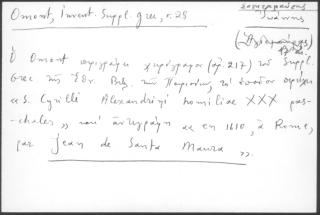 Omont, Invent. Suppl. grec, σ. 28
Σαγκταμαύρας
Ἰωάννης
Ὁ Omont περιγράφει χειρόγραφον (ἀρ. 217) τοῦ Suppl.
Grec τῆς Ἐθν. Βιβ. τῶν Παρισίων, τὸ ὁποῖον περιέχει
«S. Cyrilli Alexandrini homiliae XXX pas-
chales» καὶ ἀντεγράφη «en 1610, à Rome,
par Jean de Santa Maura».